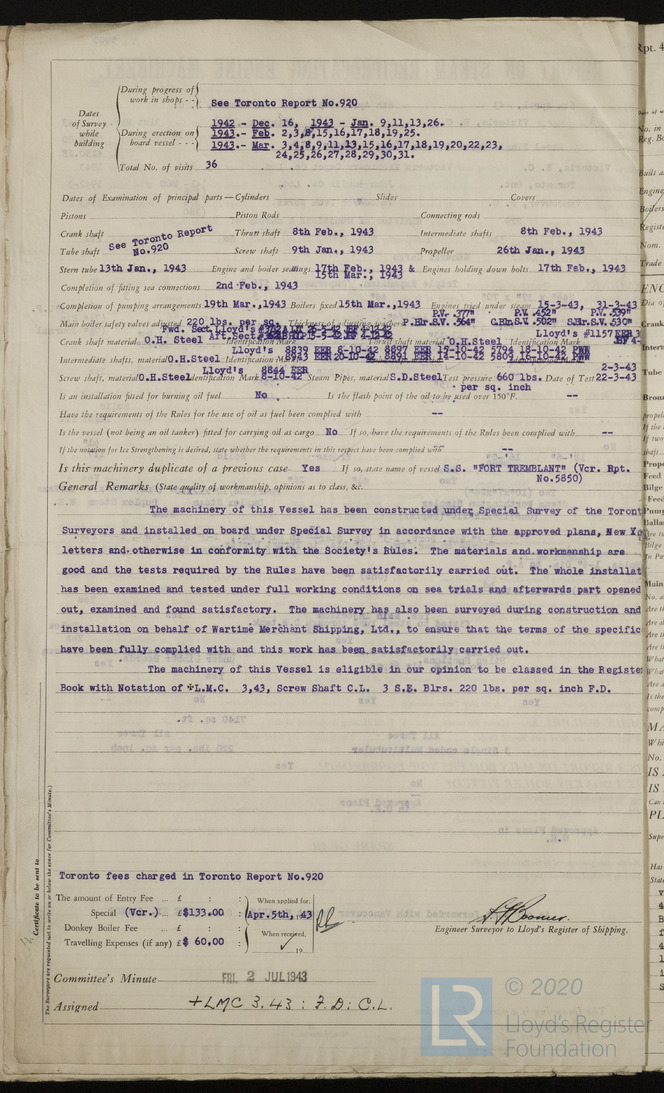 During progress of work in shops - - See Toronto Report No.920
Dates of Survey while building
During erection on board vessel - - -
1942 - Dec. 16, 1943 - Jan. 9,11,13,26.
1943.- Feb. 2,3,8,15,16,17,18,19,25.
1943.- Mar. 3,4,8,9,11,13,15,16,17,18,19,20,22,23,
24,25,26,27,28,29,30,31.
Total No. of visits 36
Dates of Examination of principal parts—Cylinders Slides Covers
Pistons Piston Rods Connecting rods
Crank shaft See Toronto Report No.920 Thrust shaft 8th Feb., 1943 Intermediate shafts 8th Feb., 1943
Tube shaft Screw shaft 9th Jan., 1943 Propeller 26th Jan., 1943
Stern tube 13th Jan., 1943 Engine and boiler seatings 17th Feb., 1943 & 15th Mar., 1943 Engines holding down bolts 17th Feb., 1943
Completion of fitting sea connections 2nd Feb., 1943
Completion of pumping arrangements 19th Mar., 1943 Boilers fixed 15th Mar., 1943 Engines tried under steam 15-3-43, 31-3-43
P.V. .377" P.V. .452" P.V. .539"
Main boiler safety valves adjusted 220 lbs. per sq. P.Blr.S.V. .564" C.Blr.S.V. .502" S.Blr.S.V. .530"
Fwd. Sect. Lloyd's Lloyd's #1157
Crank shaft material O.H. Steel Aft. Sect. Identification Mark Thrust shaft material O.H.Steel Identification Mark
Lloyd's 8839 EER 8-10-42 8897 EER 19-10-42 5794 18-10-42
Intermediate shafts, material O.H.Steel Identification Marks 8943 8891 EER 14-10-42 5809 16-10-42
Lloyd's 8844 EER 2-3-43
Screw shaft, material O.H.Steel Identification Mark 8-10-42 Steam Pipes, material S.D.Steel Test pressure 660 lbs. per sq. inch Date of Test 22-3-43
Is an installation fitted for burning oil fuel No Is the flash point of the oil to be used over 150°F. --
Have the requirements of the Rules for the use of oil as fuel been complied with --
Is the vessel (not being an oil tanker) fitted for carrying oil as cargo No If so, have the requirements of the Rules been complied with --
If the notation for Ice Strengthening is desired, state whether the requirements in this respect have been complied with --
Is this machinery duplicate of a previous case Yes If so, state name of vessel S.S. "FORT TREMBLANT" (Vcr. Rpt. No.5850)
General Remarks (State quality of workmanship, opinions as to class, &c.
The machinery of this Vessel has been constructed under Special Survey of the Toront
Surveyors and installed on board under Special Survey in accordance with the approved plans, New Yo
letters and otherwise in conformity with the Society's Rules. The materials and workmanship are
good and the tests required by the Rules have been satisfactorily carried out. The whole installat
has been examined and tested under full working conditions on sea trials and afterwards part opened
out, examined and found satisfactory. The machinery has also been surveyed during construction and
installation on behalf of Wartime Merchant Shipping, Ltd., to ensure that the terms of the specific
have been fully complied with and this work has been satisfactorily carried out.
The machinery of this Vessel is eligible in our opinion to be classed in the Register
Book with Notation of +L.M.C. 3,43, Screw Shaft C.L. 3 S.E. Blrs. 220 lbs. per sq. inch F.D.
Toronto fees charged in Toronto Report No.920
The amount of Entry Fee ... £ : : When applied for,
Special (Vcr.) ... £$133.00 : Apr.5th, 43
Donkey Boiler Fee ... £ : : When received,
Travelling Expenses (if any) £$ 60.00 : 19
Engineer Surveyor to Lloyd's Register of Shipping.
Committee's Minute FRI. 2 JUL 1943
Assigned +LMC 3.43 : F.D : C.L.
Certificate to be sent to
The Surveyors are requested not to write on or below the space for Committee's Minute.
LR © 2020
Lloyd's Register
Foundation